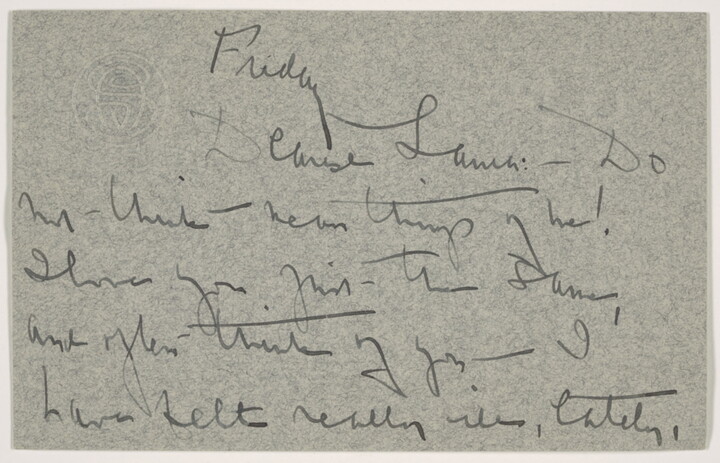 Friday
Dearest Laura: — Do
not — think — mean things of me!
I love you just — the same,
and often think of you — I
have felt really ill, lately,